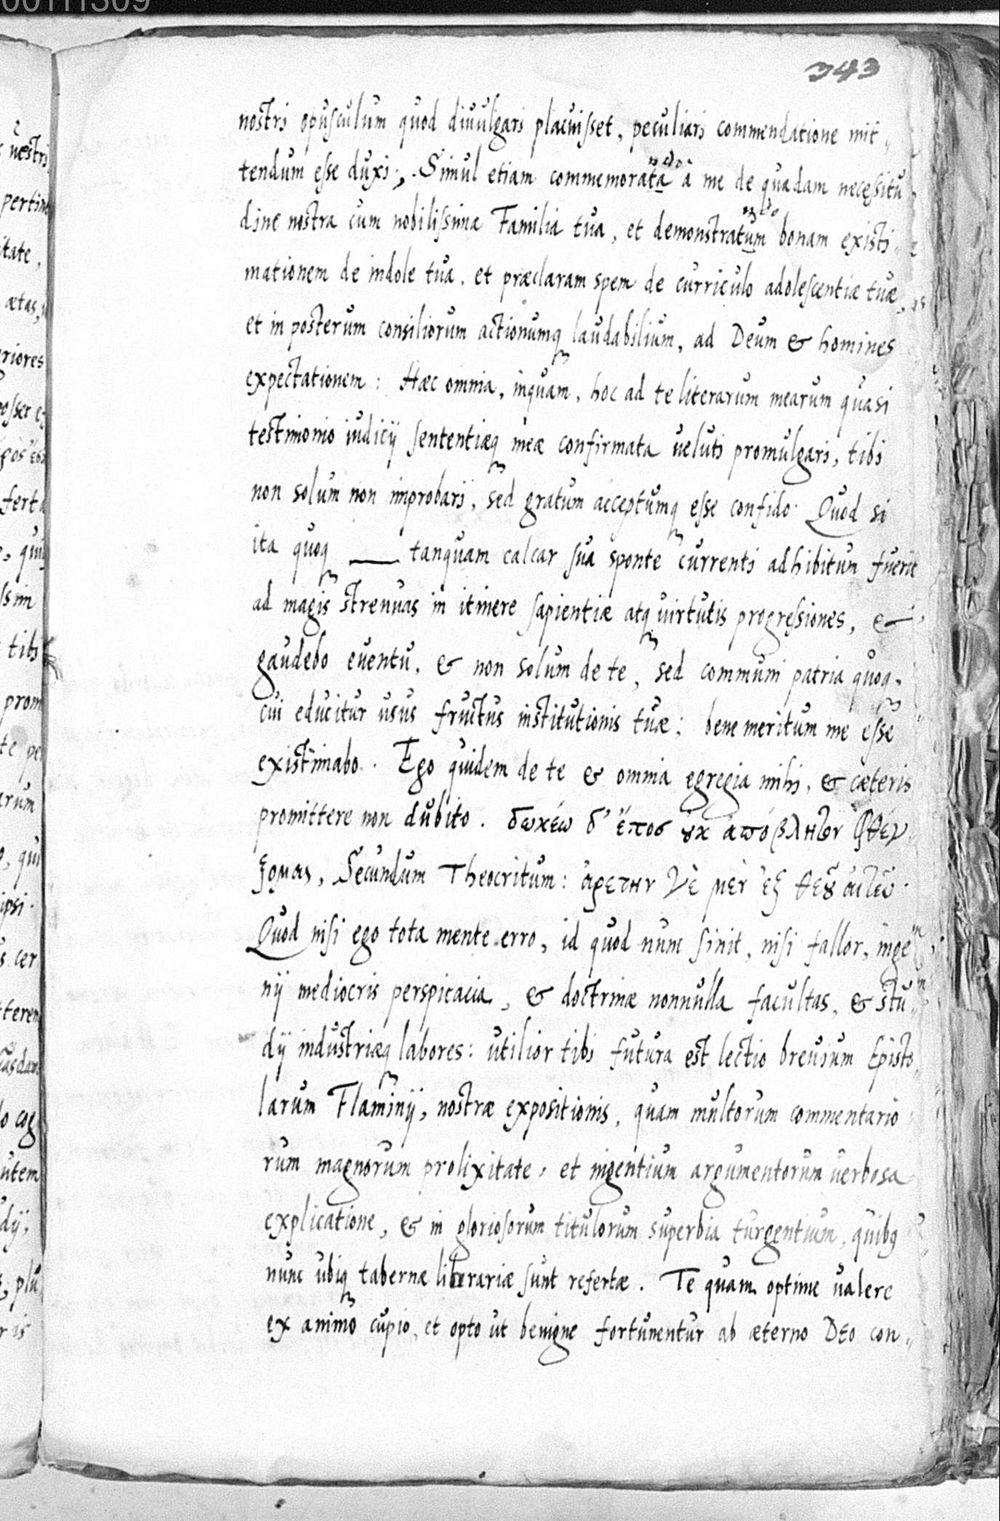 00111309
343
nostri opusculum quod diuulgari placuisset, peculiari commendatione mit„
tendum esse duxi; Simul etiam commemorata à me de quadam necessitu
dine nostra cum nobilissima Familia tua, et demonstratum bonam existi„
mationem de indole tua, et præclaram spem de curriculo adolescentiæ tuæ,
et in posterum consiliorum actionumq laudabilium, ad Deum & homines
expectationem: Hæc omnia, inquam, hoc ad te literarum mearum quasi
testimonio iudicij sententiæq meæ confirmata ueluti promulgari, tibi
non solum non improbari, sed gratum acceptumq esse confido. Quod si
ita quoq ___ tanquam calcar sua sponte currenti adhibitum fuerit
ad magis strenuas in itinere sapientiæ atq uirtutis progressiones, &
gaudebo euentu, & non solum de te, sed communi patria quoq,
cui educitur usus fructus institutionis tuæ; bene meritum me esse
existimabo. Ego quidem de te & omnia egregia mihi, & cæteris
promittere non dubito. δωκέω δ' ἔπος ȣκ ἀπόβλητον φθεγ
ξομαι, Secundum Theocritum: ἀρετὴν γε μὲν ἐξ θεȣ αἰτεῦ.
Quod nisi ego tota mente erro, id quod nunc sinit, nisi fallor, inge
nij mediocris perspicacia, & doctrinæ nonnulla facultas, & stu
dij industriæq labores: utilior tibi futura est lectio breuium Episto„
larum Flaminij, nostræ expositionis, quam multorum commentario
rum magnorum prolixitate, et ingentium argumentorum uerbosa
explicatione, & in gloriosorum titulorum superbia turgentium, quibq
nunc ubiq tabernæ librariæ sunt refertæ. Te quam optime ualere
ex animo cupio, et opto ut benigne fortunentur ab æterno Deo con„